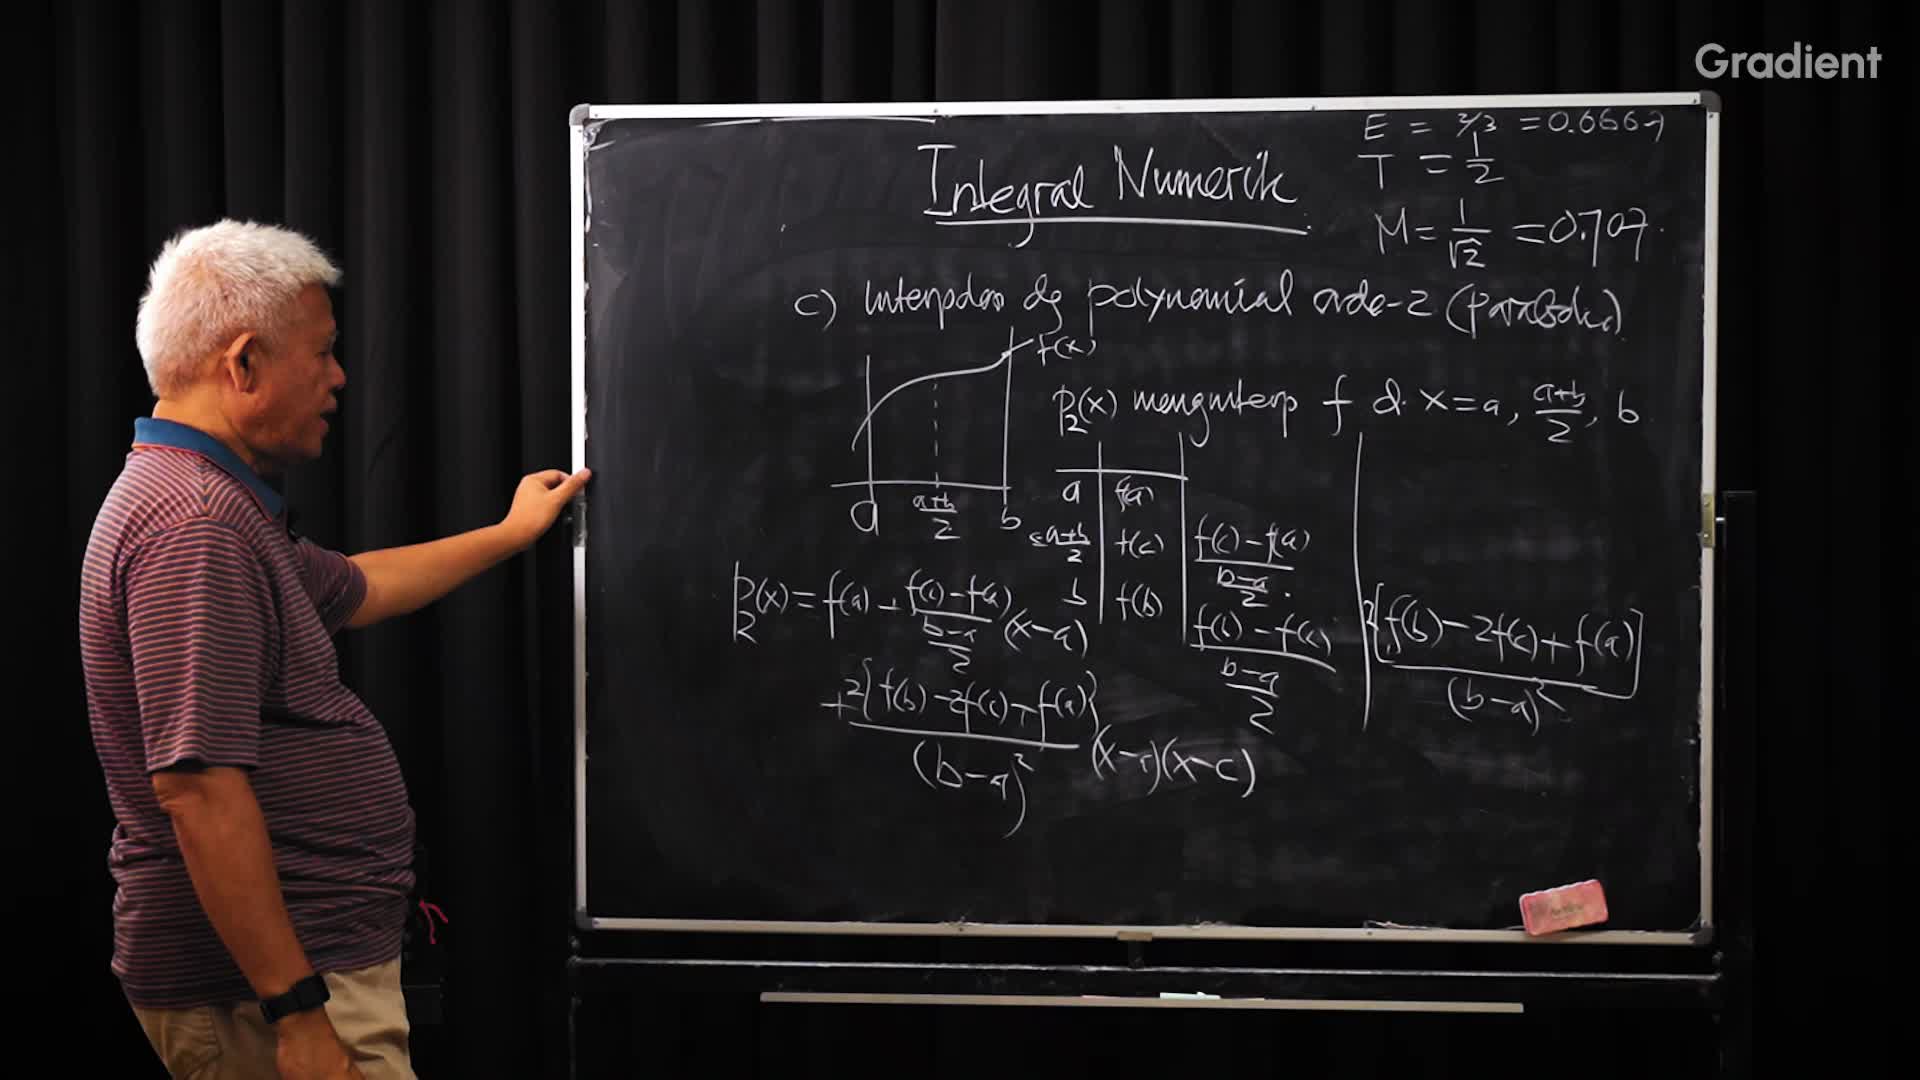 Gradient
E = 2/3 = 0.6667
T = 1/2
M = 1/√2 = 0.707
Integral Numerik
c) Interpolasi dg polynomial orde-2 (Parabola)
f(x)
a (a+b)/2 b
P₂(x) menginterp f di x = a, (a+b)/2, b
a f(a)
c=(a+b)/2 f(c) (f(c)-f(a))/((b-a)/2)
b f(b) (f(b)-f(c))/((b-a)/2) 2{f(b)-2f(c)+f(a)}/(b-a)²
P₂(x) = f(a) + (f(c)-f(a))/((b-a)/2) (x-a)
+ 2{f(b)-2f(c)+f(a)}/(b-a)² (x-a)(x-c)